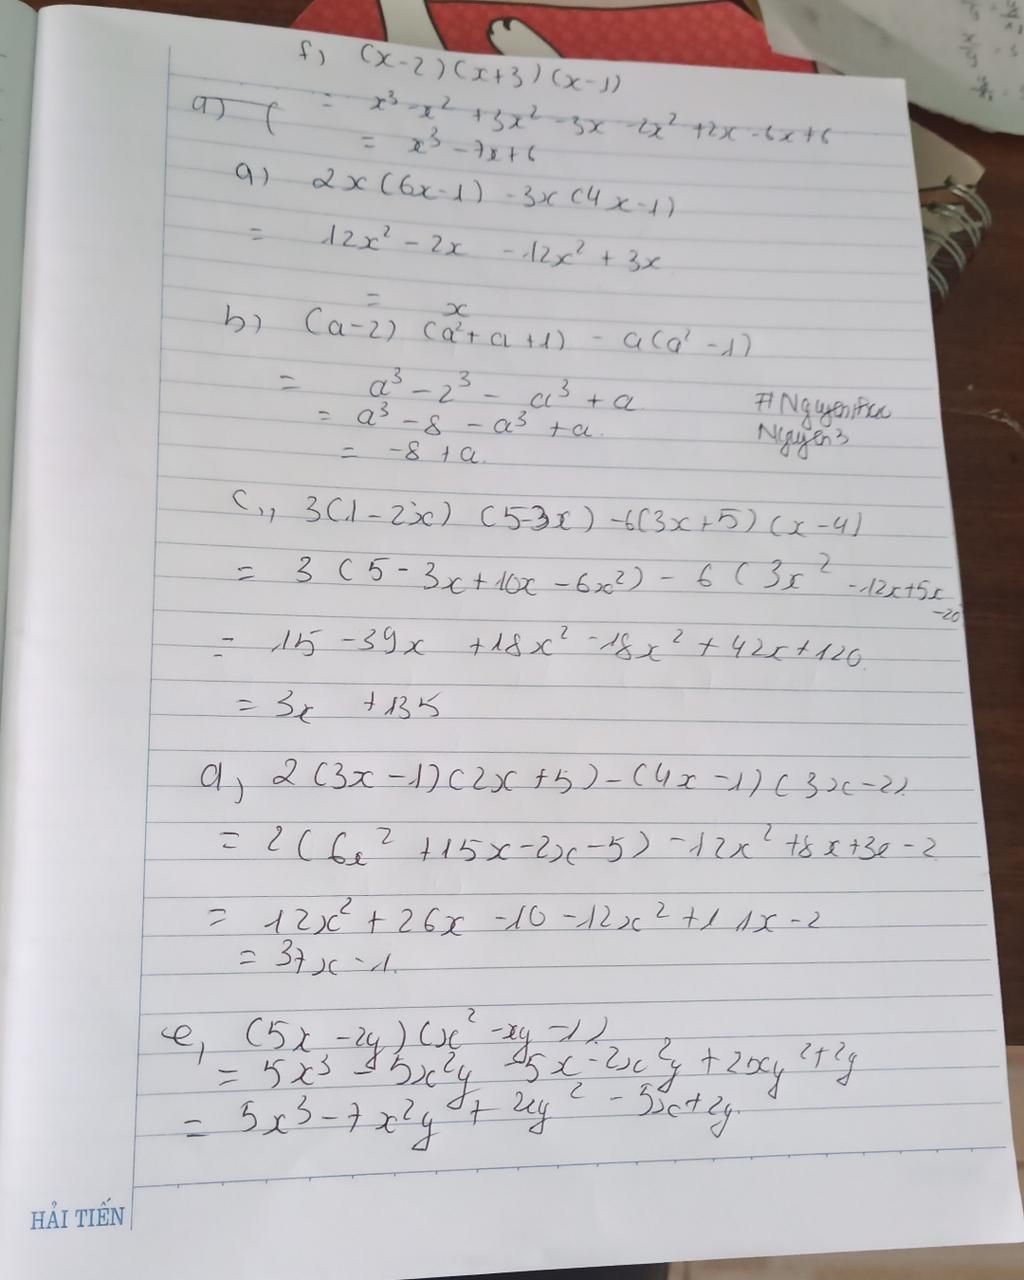 f) (x-2)(x+3)(x-1)
= x³ -x² +3x² -3x -2x² +2x -6x+6
= x³ -7x+6
a) 2x(6x-1) -3x(4x-1)
= 12x² - 2x -12x² + 3x
= x
b) (a-2) (a²+a+1) - a(a² -1)
= a³ - 2³ - a³ + a
= a³ -8 -a³ +a.
= -8 +a.
#Nguyen
Nguyen3
c,, 3(1-2x) (5-3x) -6(3x+5)(x-4)
= 3 (5 - 3x+10x -6x²) - 6 (3x² -12x+5x
-20
= 15 -39x +18x² -18x² + 42x+120.
= 3x +135
d, 2(3x-1)(2x+5)-(4x-1)(3x-2)
= 2(6x² +15x-2x-5) -12x² +8x+3x-2
= 12x² + 26x -10 -12x² +11x -2
= 37x -1.
e, (5x -2y)(x² -xy -1)
= 5x³ - 5x²y -5x -2x²y + 2xy² +2y
= 5x³ - 7x²y + 2xy² - 5x+2y.
HẢI TIẾN